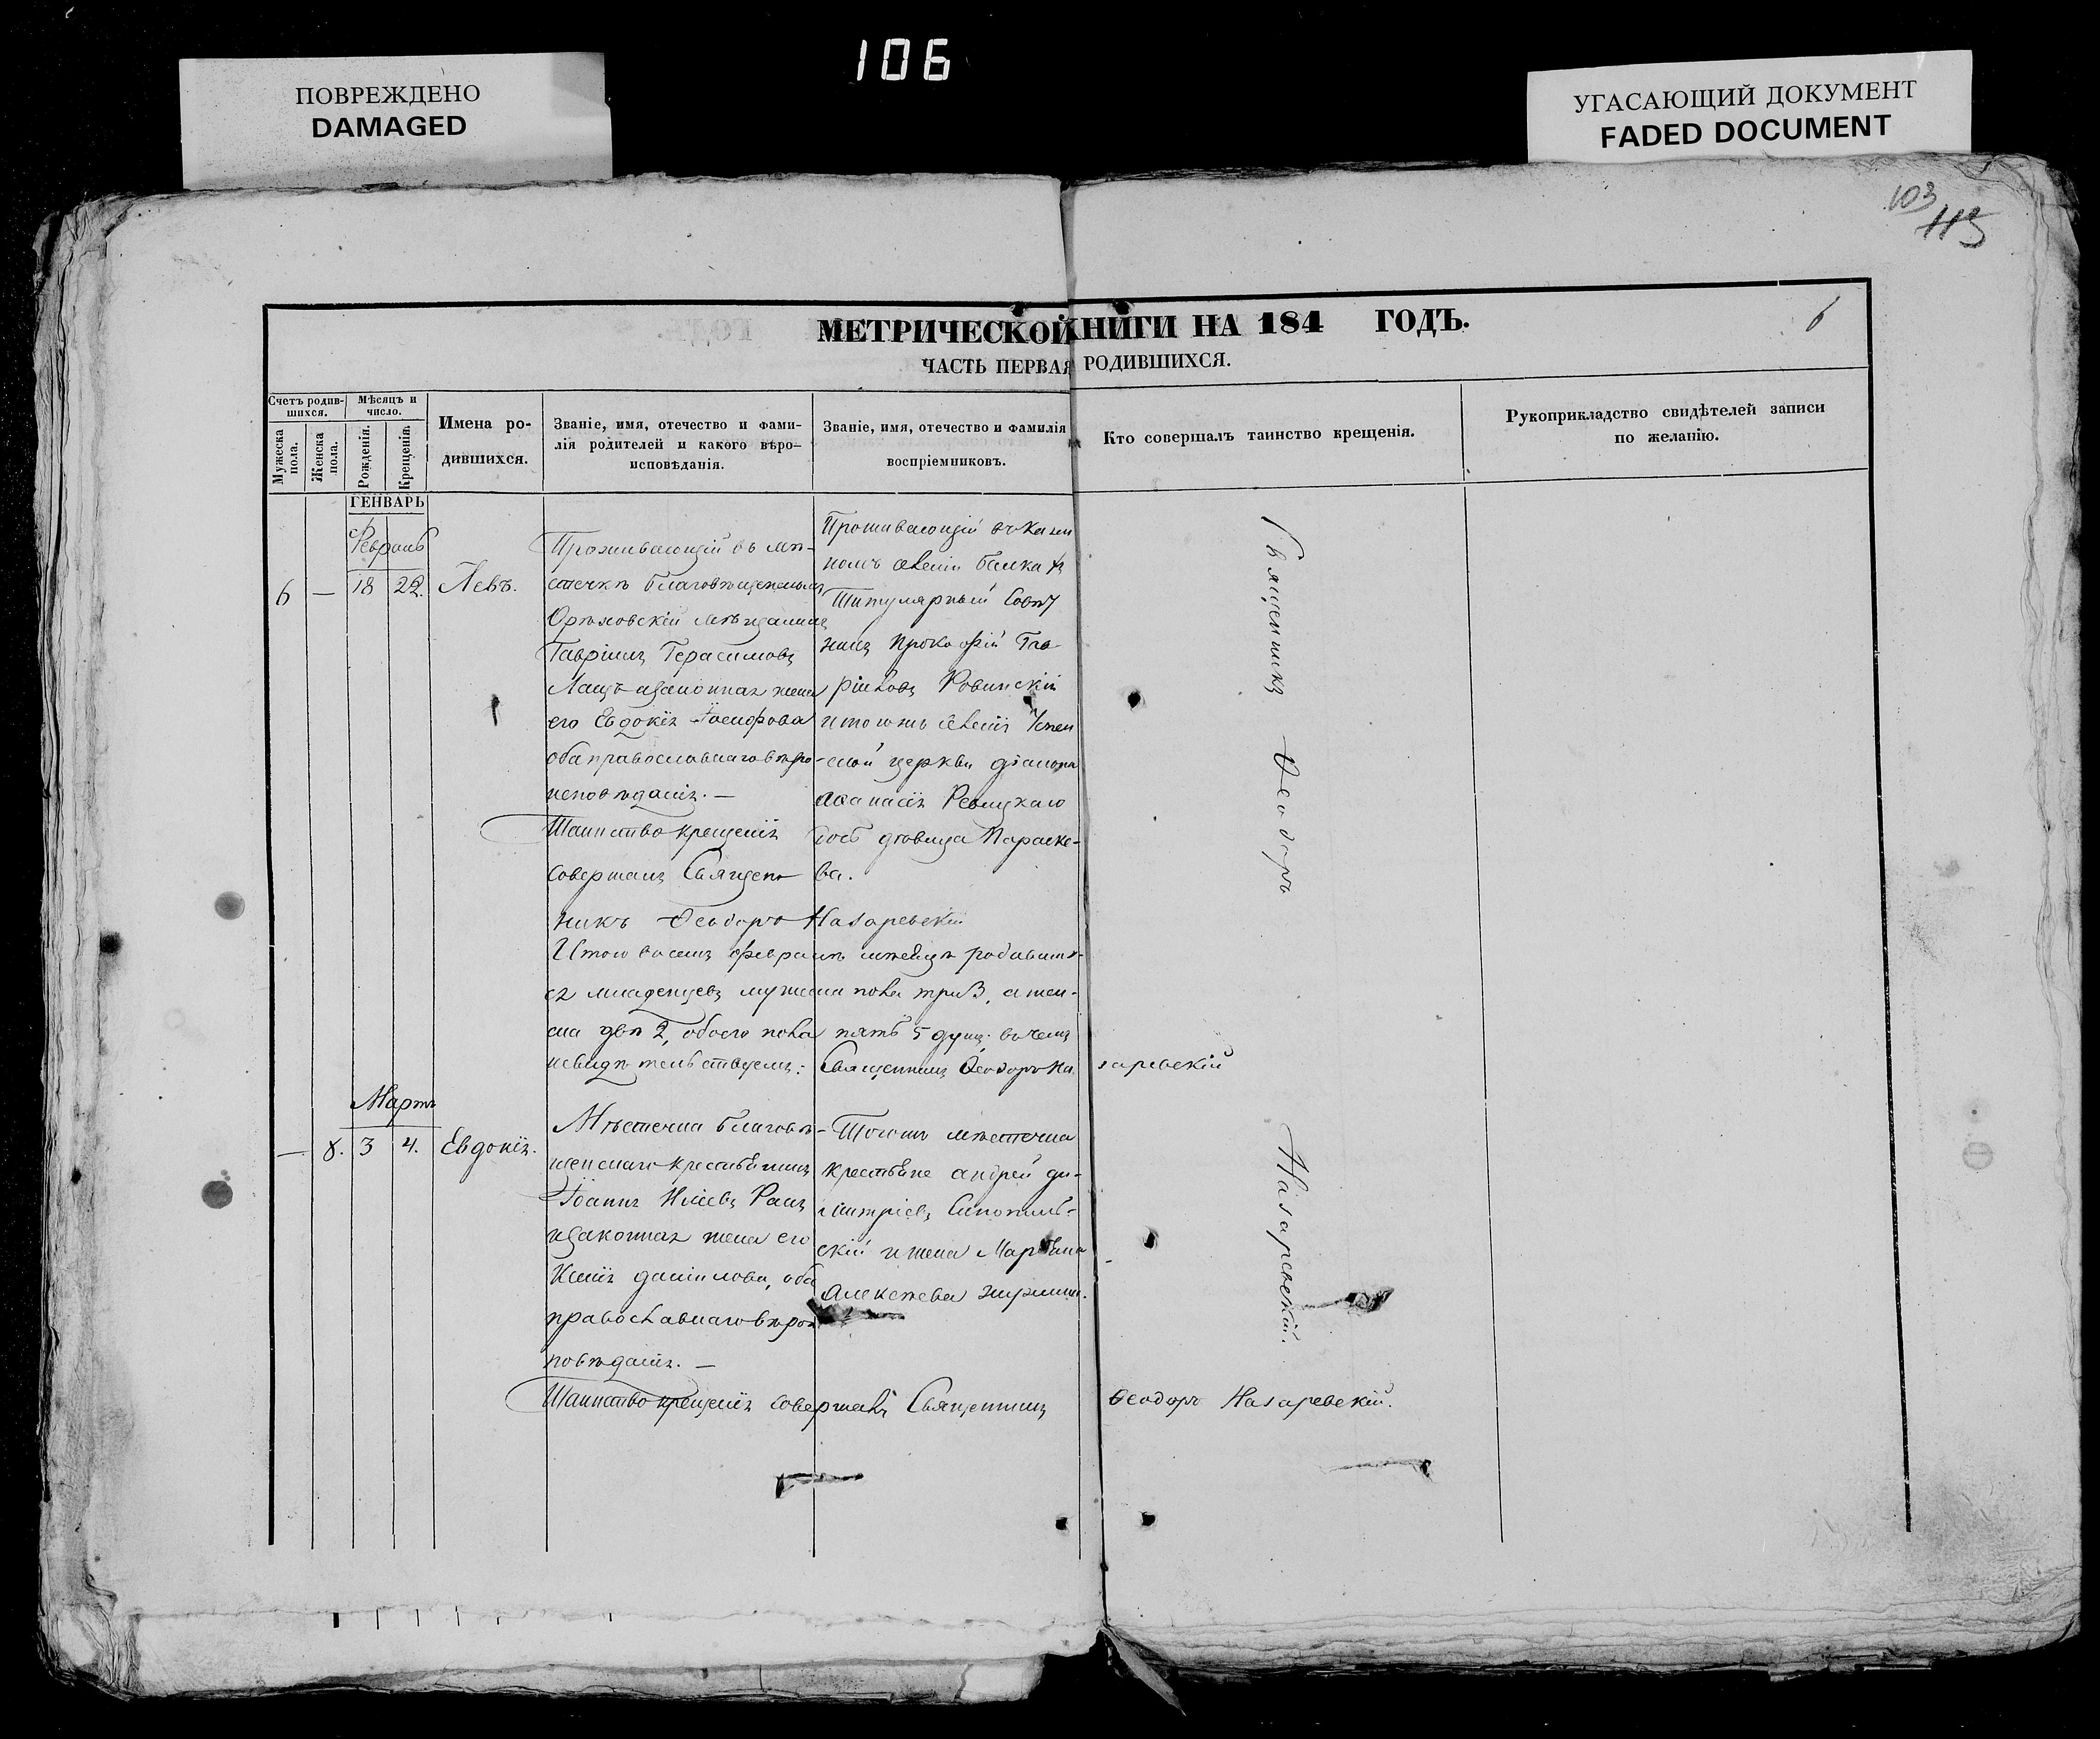 106
ПОВРЕЖДЕНО
DAMAGED
УГАСАЮЩИЙ ДОКУМЕНТ
FADED DOCUMENT
103
113
МЕТРИЧЕСКОЙ КНИГИ НА 184 ГОДЪ.
6
ЧАСТЬ ПЕРВАЯ РОДИВШИХСЯ.
Счетъ родив-
шихся.
Мужеска
пола.
Женска
пола.
Мѣсяцъ и
число.
Рожденія.
Крещенія.
Имена ро-
дившихся.
Званіе, имя, отечество и фами-
лія родителей и какого вѣро-
исповѣданія.
Званіе, имя, отечество и фамилія
воспріемниковъ.
Кто совершалъ таинство крещенія.
Рукоприкладство свидѣтелей записи
по желанію.
ГЕНВАРЬ
Февраль
6 — 18 22. Левъ.
Проживающій въ мѣ-
стечкѣ благовѣщенскомъ
Орѣховскій мѣщанинъ
Гавріилъ Герасимовъ
изаконная жена
его Евдокія Іосифова
оба православнаго вѣро
исповѣданія. —
Таинство крещенія
совершалъ Священ
никъ Ѳеодоръ Назаревскій
Проживающій въ
номъ селеніи Балка
Титулярный Совѣт
никъ Прокофій Гав
ріиловъ Ровинскій
и тогожъ селенія Успен
ской церкви діакона
Аѳанасія Ревуцкаго
дочь дѣвица Параске-
ва.
Священникъ Ѳеодоръ Назаревскій.
Итого въ семъ февралѣ мѣсяцѣ родивших-
ся младенцевъ мужеска пола три 3, а жен-
ска двѣ 2, обоего пола пять 5 душъ. въ чемъ
исвидѣтельствуемъ: Священникъ Ѳеодоръ Назаревскій
Мартъ
— 8. 3 4. Евдокія.
Мѣстечка благовѣ-
щенскаго крестьянинъ
Іоаннъ Иліевъ
изаконная жена его
Ксенія даніилова, оба
православнаго вѣрои
повѣданія. —
Тогожъ мѣстечка
крестьяне андрей ди-
митріевъ
скій и жена Марѳина
Алексѣева
Таинство крещенія совершалъ Священникъ Ѳеодоръ Назаревскій.